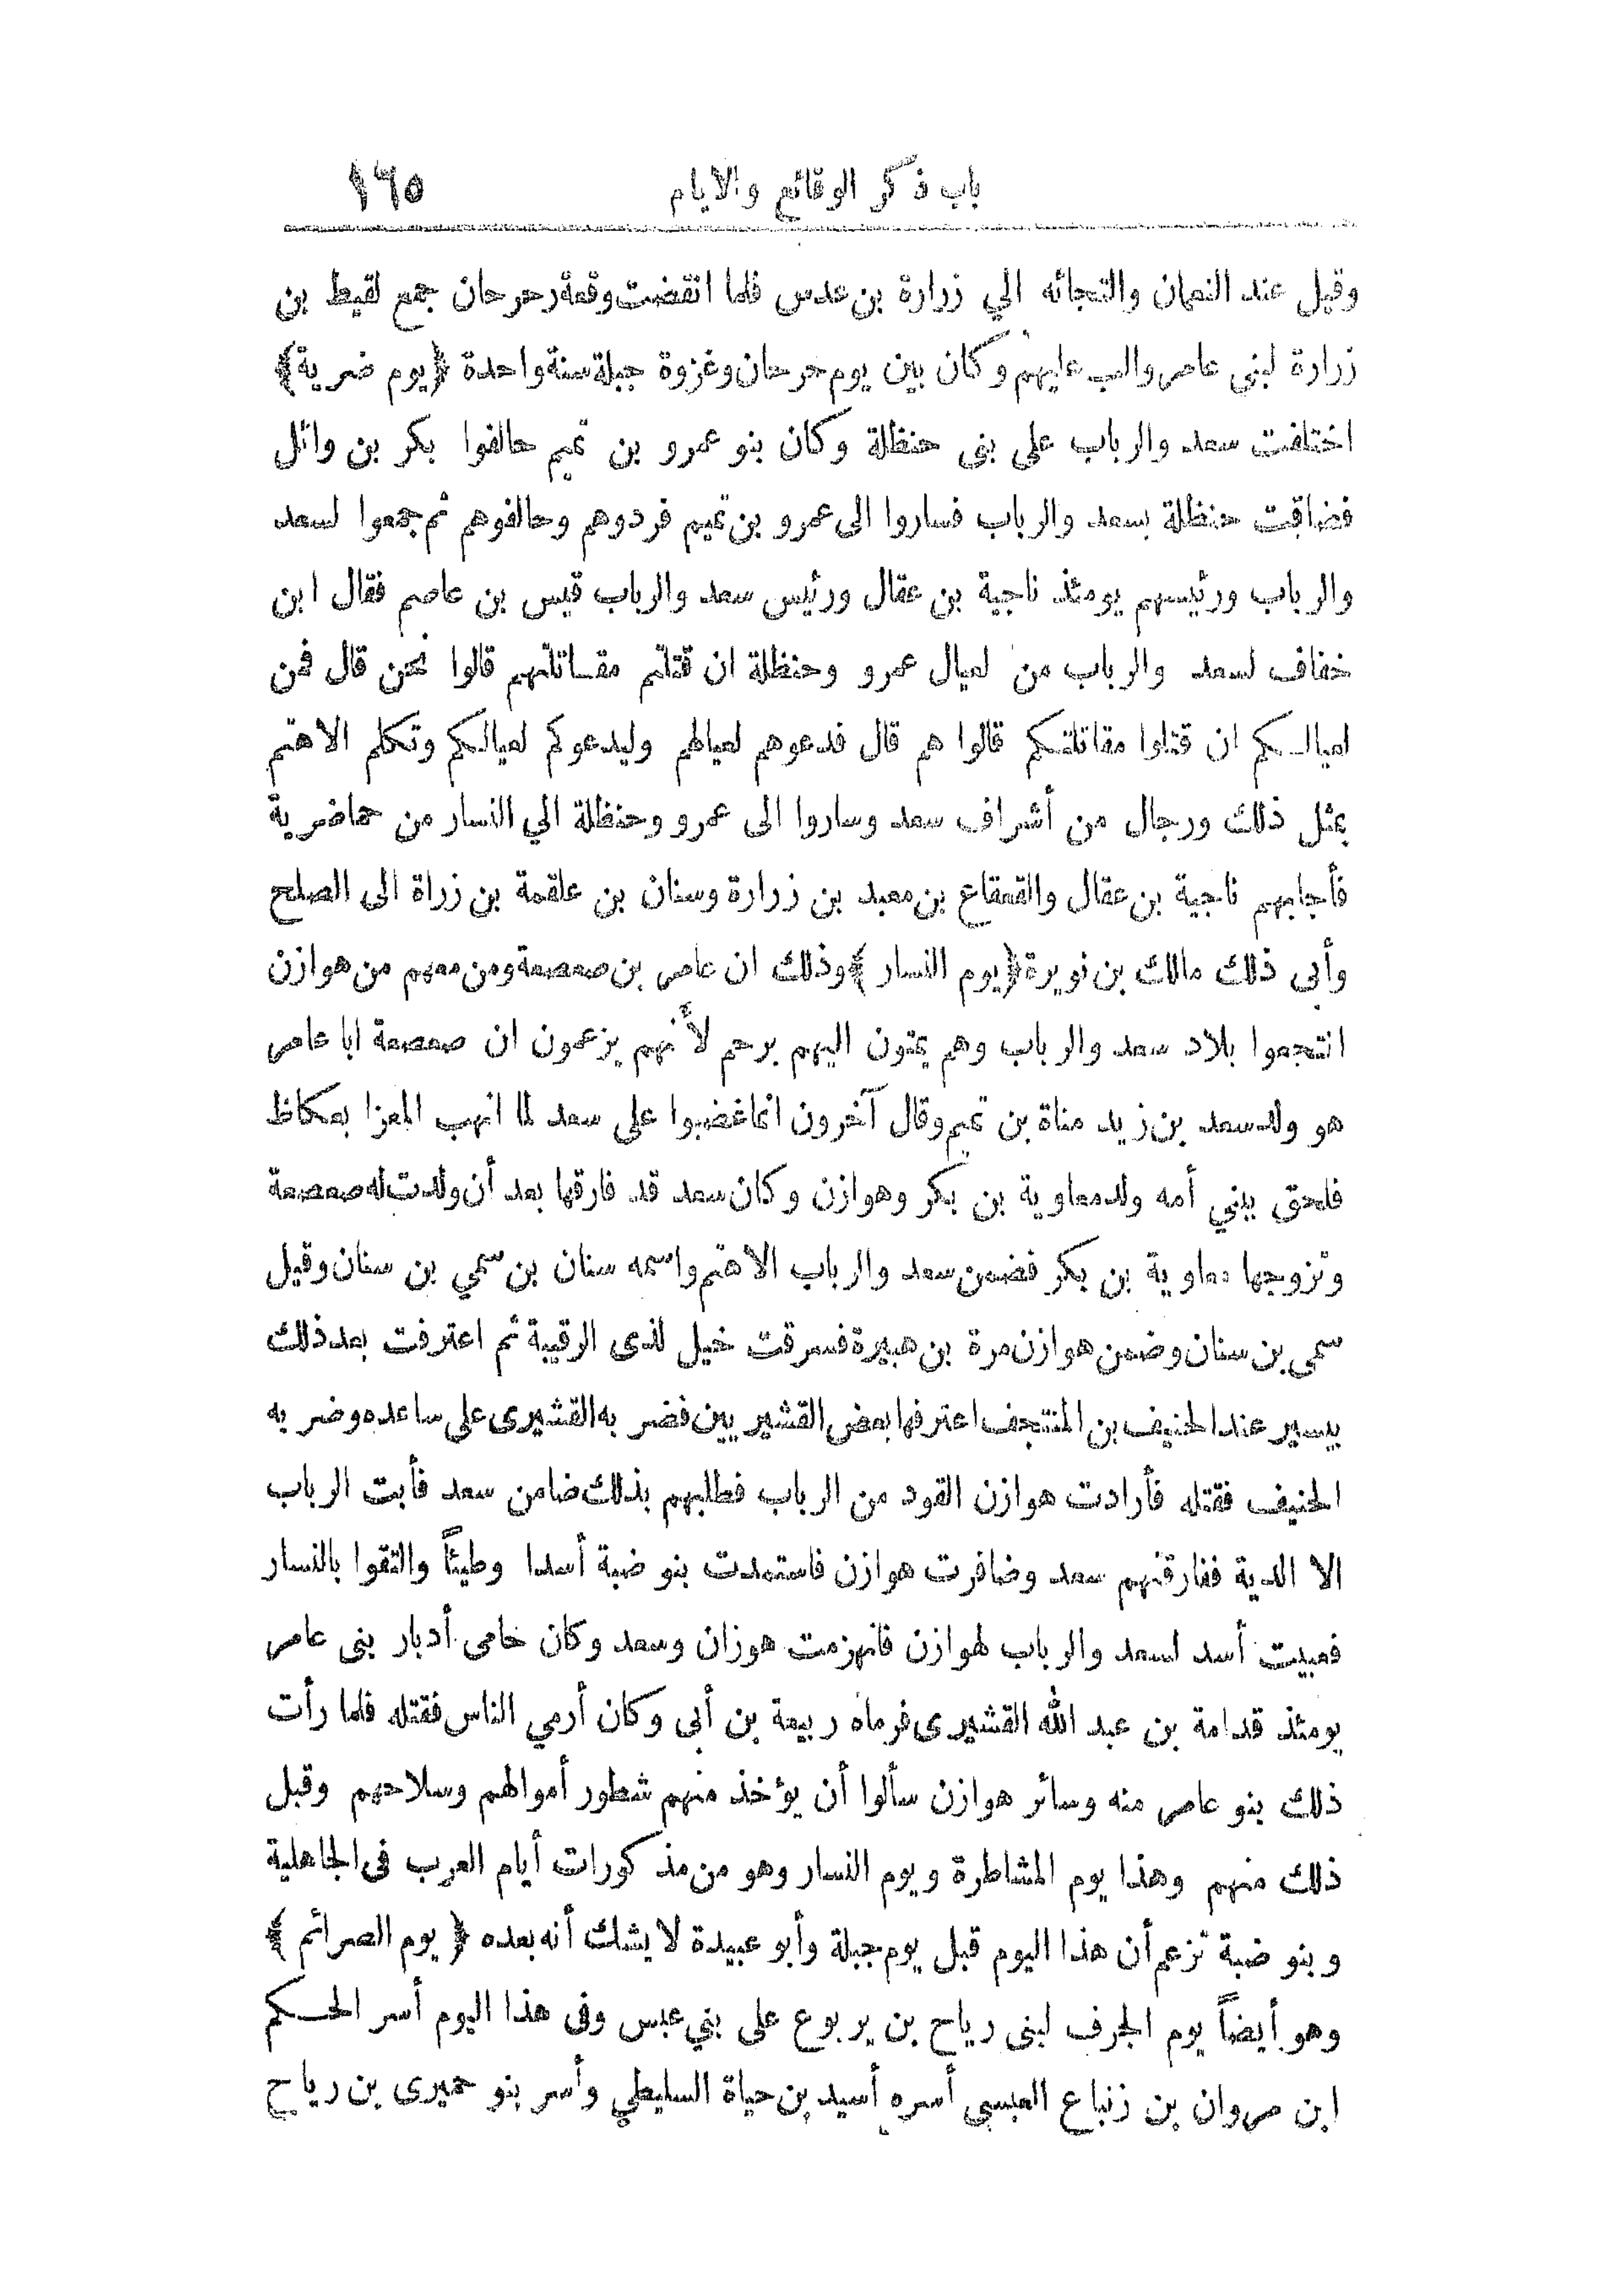 باب ذكر الوقائع والايام ١٦٥
وقيل عند النعمان والتجائه الي زرارة بن عدس فلما انقضت وقعة رحرحان جمع لقيط بن
زرارة لبنى عامر والب عليهم وكان بين يوم حرحان وغزوة جبلة سنة واحدة ﴿يوم ضرية﴾
اختلفت سعد والرباب على بنى حنظلة وكان بنو عمرو بن تميم حالفوا بكر بن وائل
فضاقت حنظلة بسعد والرباب فساروا الى عمرو بن تميم فردوهم وحالفوهم ثم جمعوا لسعد
والرباب ورئيسهم يومئذ ناجية بن عقال ورئيس سعد والرباب قيس بن عاصم فقال ابن
خفاف لسعد والرباب من لعيال عمرو وحنظلة ان قتلتم مقاتلتهم قالوا نحن قال فمن
لعيالكم ان قتلوا مقاتلتكم قالوا هم قال فدعوهم لعيالهم وليدعوكم لعيالكم وتكلم الاهتم
بمثل ذلك ورجال من أشراف سعد وساروا الى عمرو وحنظلة الي النسار من حماضرية
فأجابهم ناجية بن عقال والقعقاع بن معبد بن زرارة وسنان بن علقمة بن زراة الى الصلح
وأبى ذلك مالك بن نويرة ﴿يوم النسار﴾ وذلك ان عامر بن صعصعة ومن معهم من هوازن
انتجعوا بلاد سعد والرباب وهم يمتون اليهم برحم لأنهم يزعمون ان صعصعة ابا عامر
هو ولد سعد بن زيد مناة بن تميم وقال آخرون انما غضبوا على سعد لما انهب المعزا بعكاظ
فلحق ببني أمه ولد معاوية بن بكر وهوازن وكان سعد قد فارقها بعد أن ولدت له صعصعة
وتزوجها معاوية بن بكر فضمن سعد والرباب الاهتم واسمه سنان بن سمي بن سنان وقيل
سمى بن سنان وضمن هوازن مرة بن هبيرة فسرقت خيل لذى الرقيبة ثم اعترفت بعد ذلك
بيسير عند الحنيف بن المنتجف اعترفها بعض القشيريين فضربه القشيرى على ساعده وضربه
الحنيف فقتله فأرادت هوازن القود من الرباب فطلبهم بذلك ضامن سعد فأبت الرباب
الا الدية ففارقتهم سعد وضافرت هوازن فاستمدت بنو ضبة أسدا وطيئاً والتقوا بالنسار
فعبيت أسد لسعد والرباب لهوازن فانهزمت هوزان وسعد وكان حامى أدبار بنى عامر
يومئذ قدامة بن عبد الله القشيرى فرماه ربيعة بن أبى وكان أرمي الناس فقتله فلما رأت
ذلك بنو عامر منه وسائر هوازن سألوا أن يؤخذ منهم شطور أموالهم وسلاحهم وقبل
ذلك منهم وهذا يوم المشاطرة ويوم النسار وهو من مذكورات أيام العرب فى الجاهلية
وبنو ضبة تزعم أن هذا اليوم قبل يوم جبلة وأبو عبيدة لايشك أنه بعده ﴿يوم الصرائم﴾
وهو أيضاً يوم الجرف لبنى رياح بن يربوع على بني عبس وفى هذا اليوم أسر الحكم
ابن مروان بن زنباع العبسي أسره أسيد بن حياة السليطي وأسر بنو حميرى بن رياح